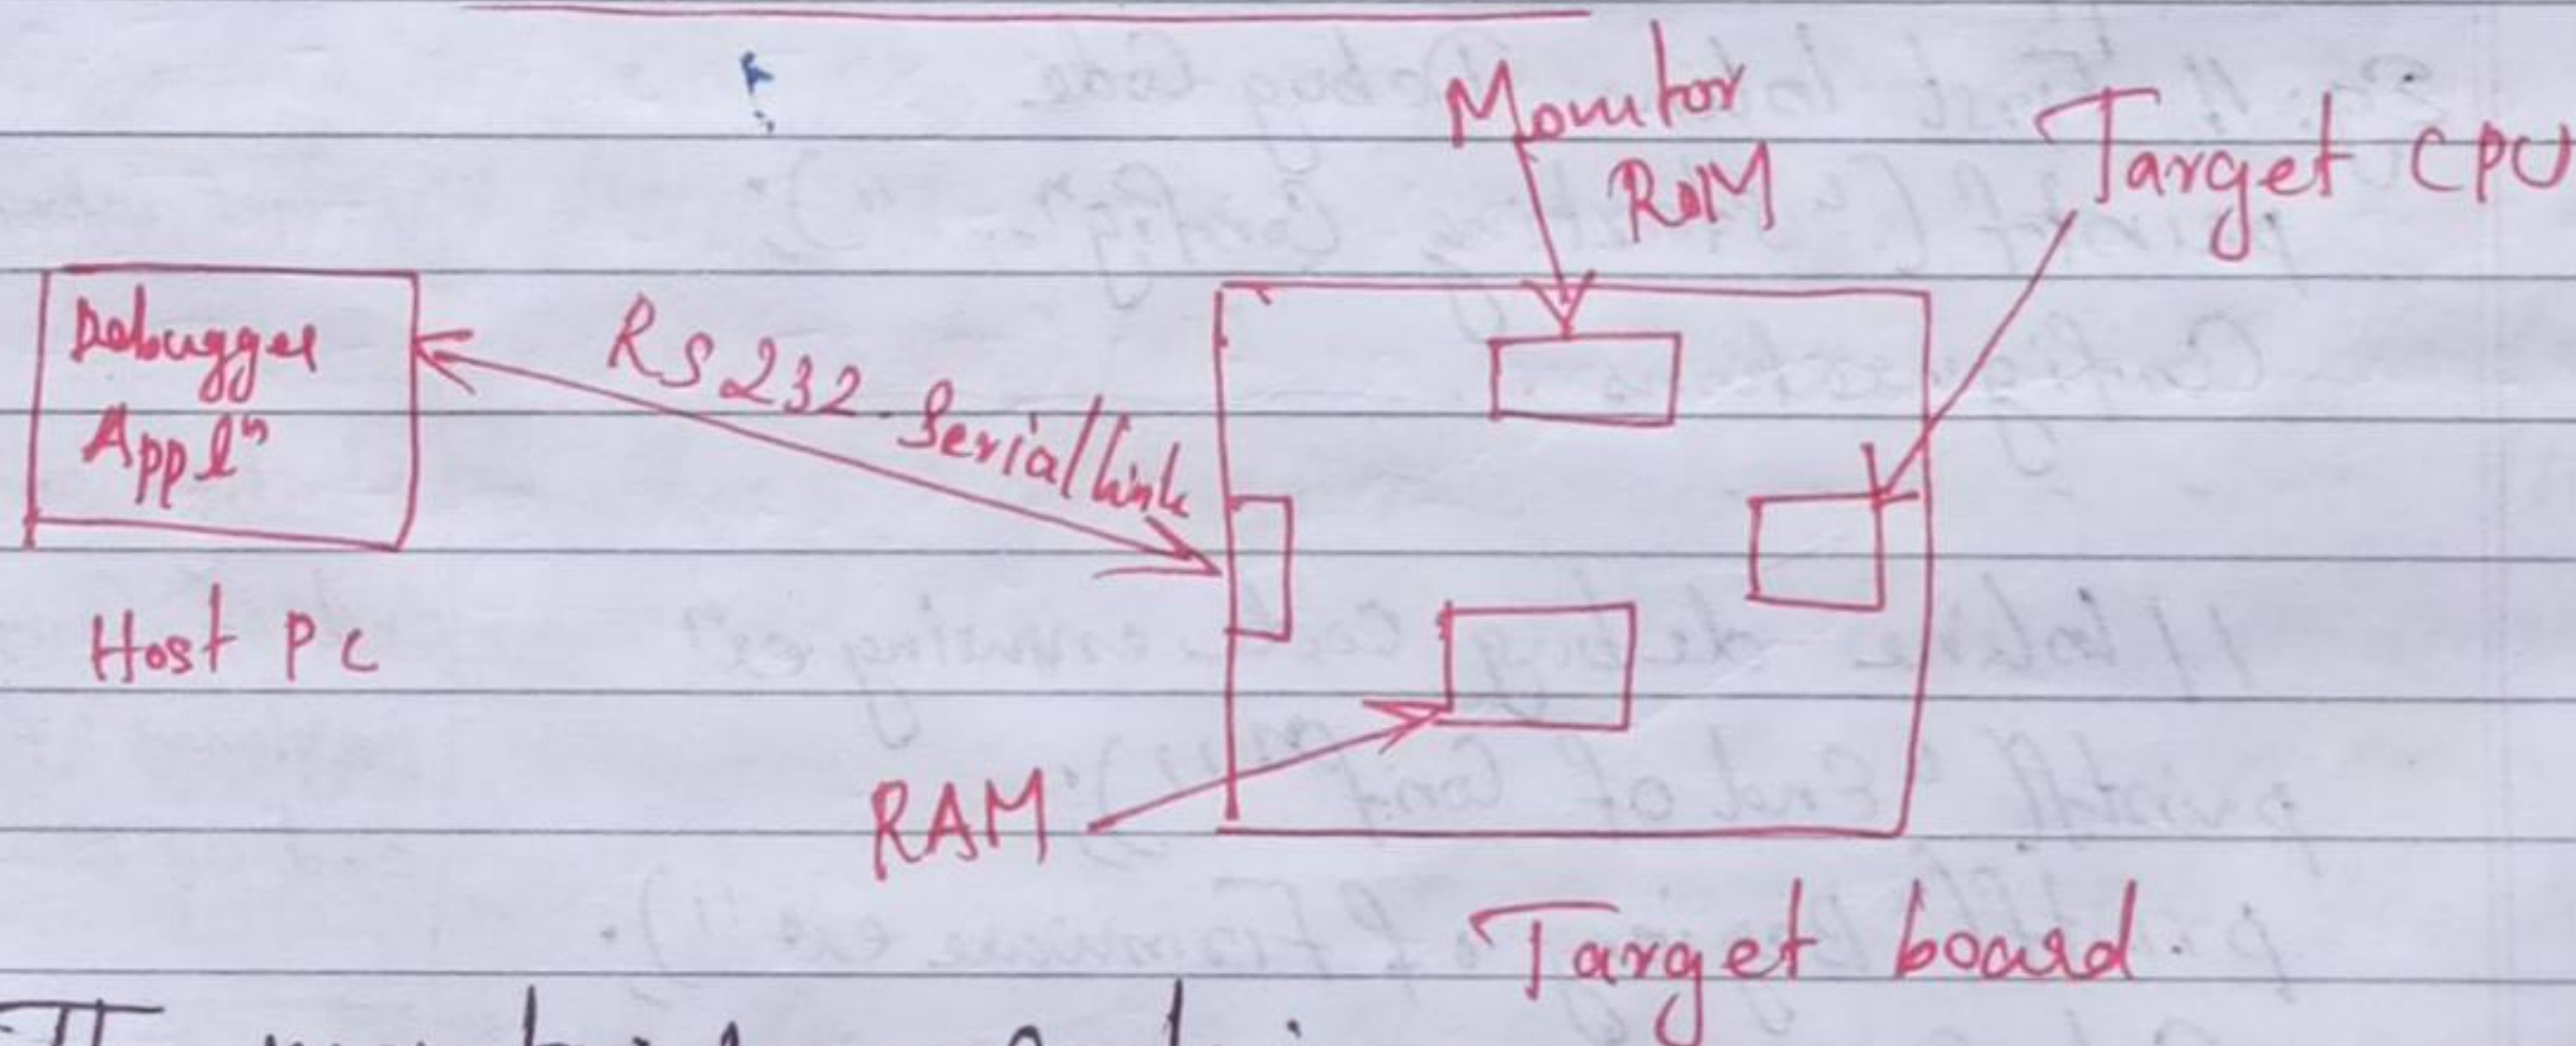 Monitor
ROM
Target CPU
Debugger
Appl^n
RS 232 Serial link
Host PC
RAM
Target board.